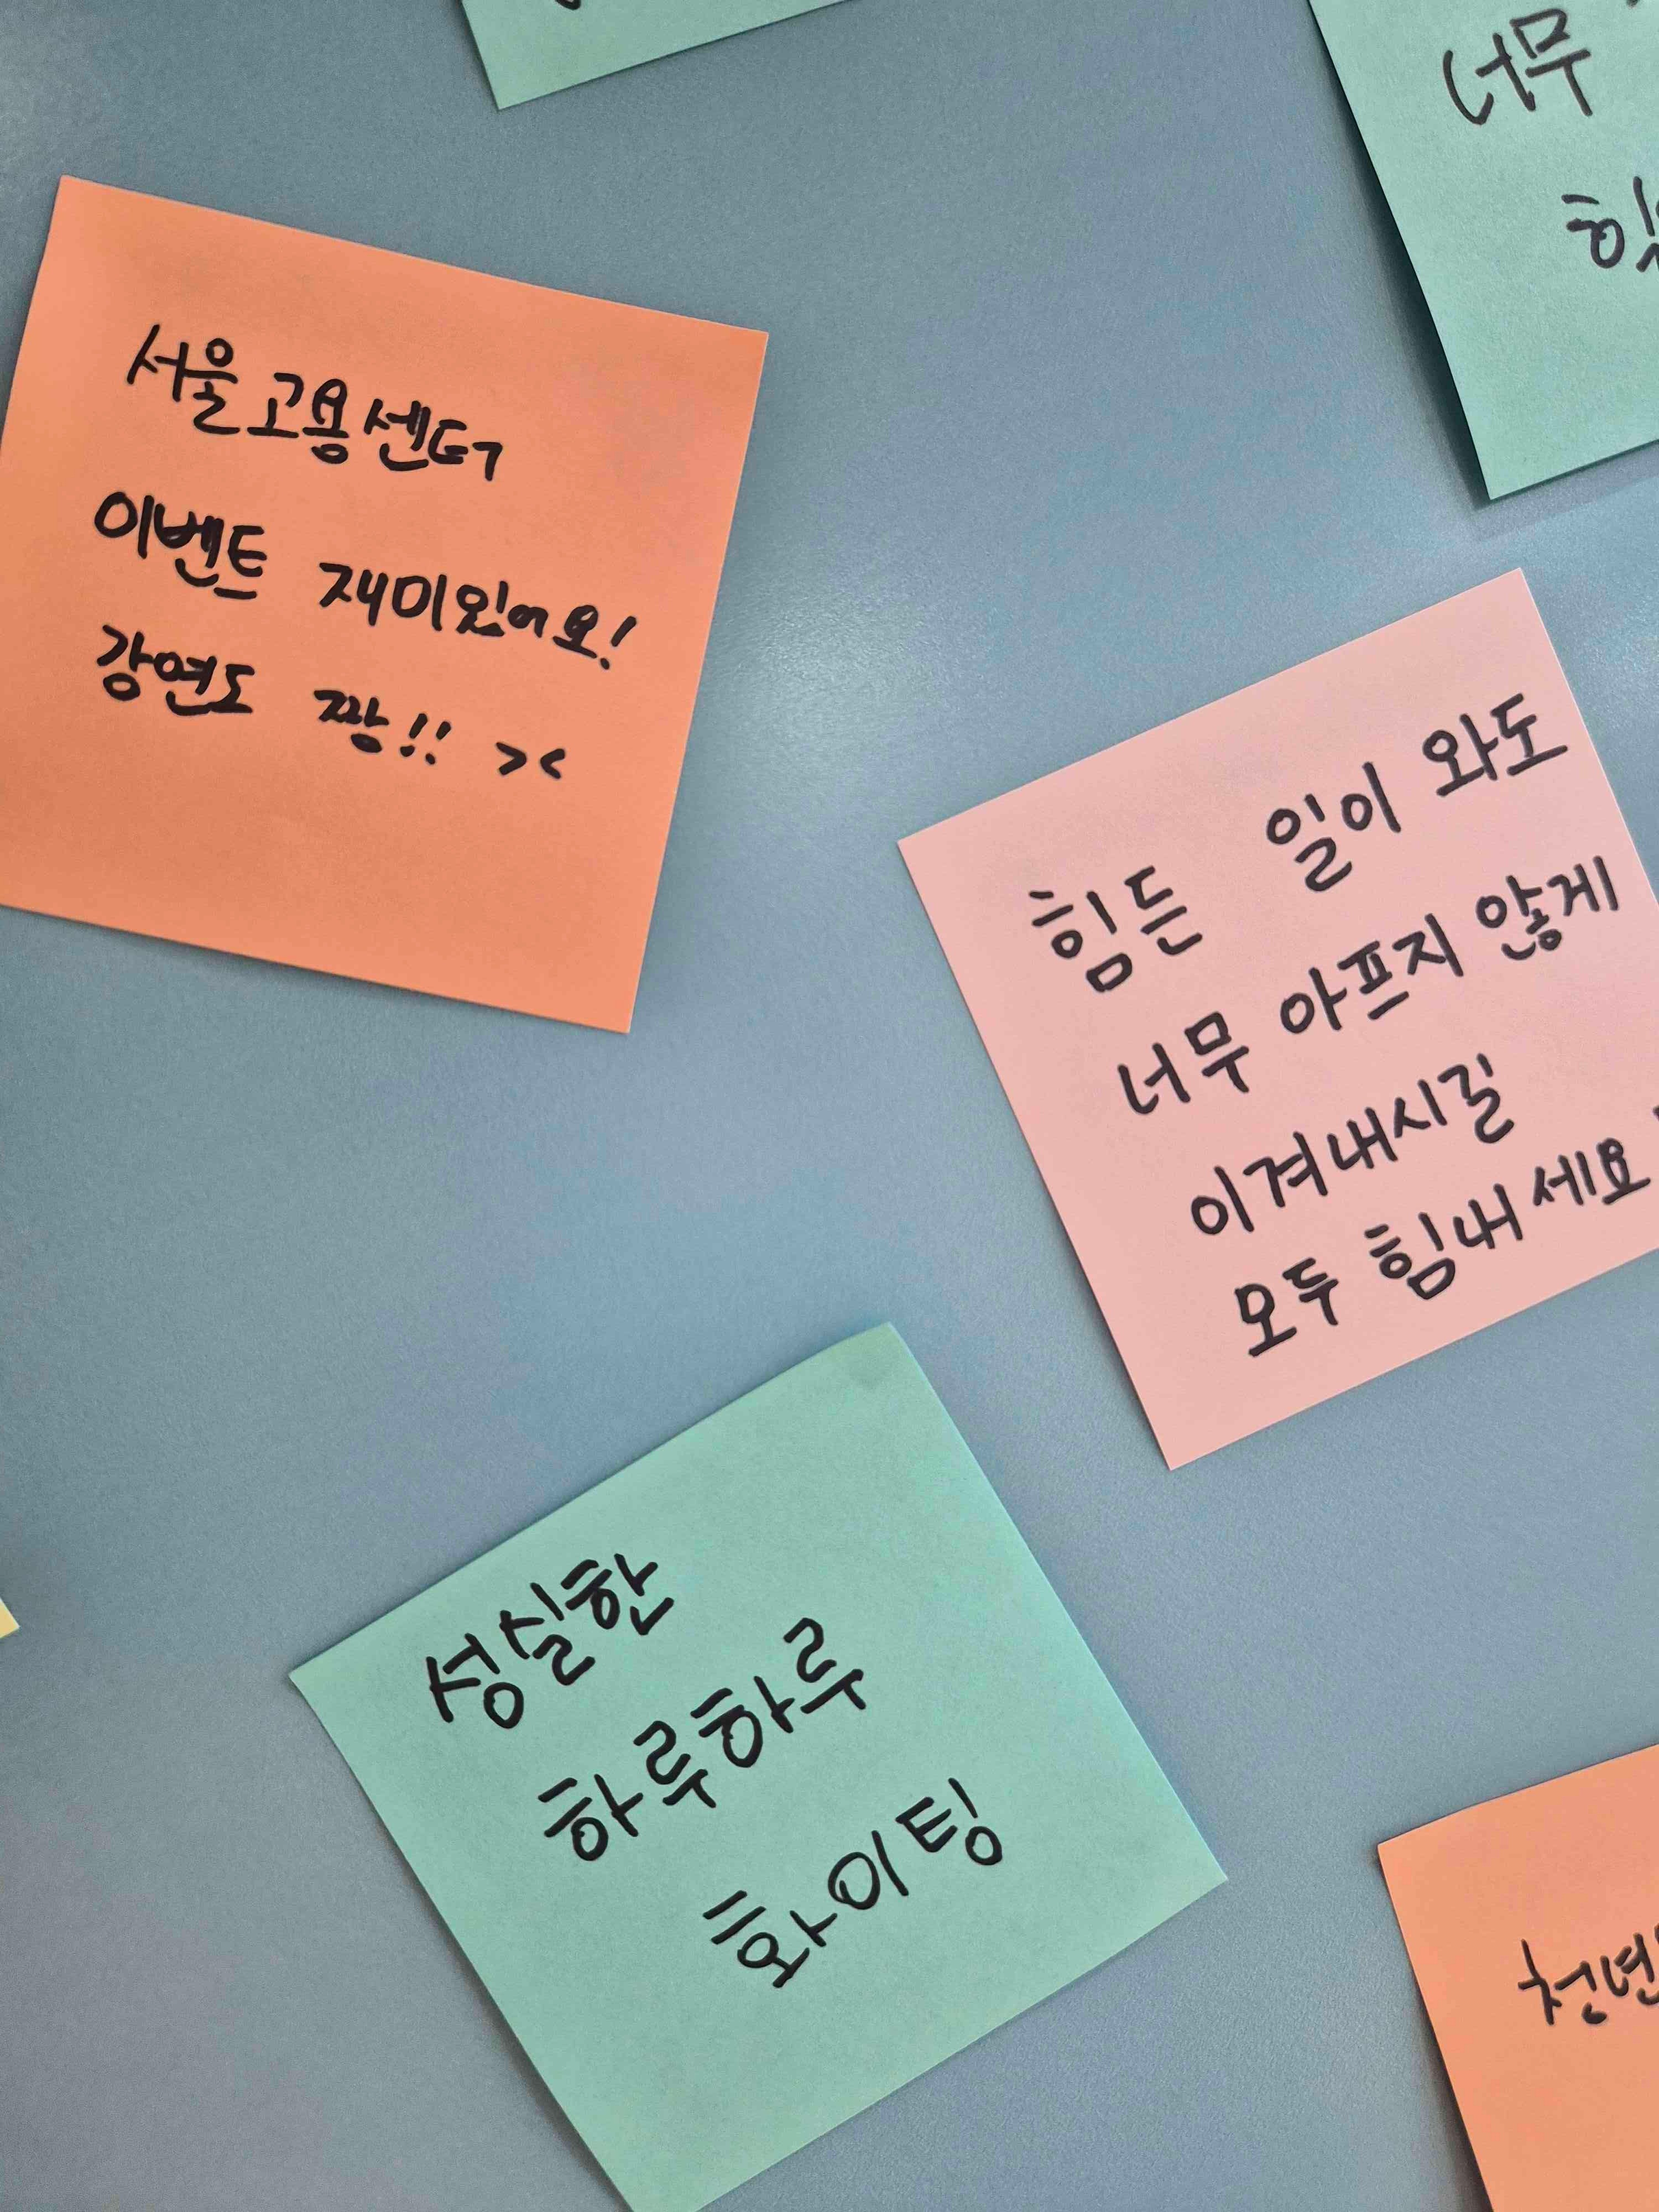 너무
서울고용센터
이벤트 재미있어요!
강연도 짱!! ><
힘든 일이 와도
너무 아프지 않게
이겨내시길
모두 힘내세요
성실한
하루하루
화이팅
청년